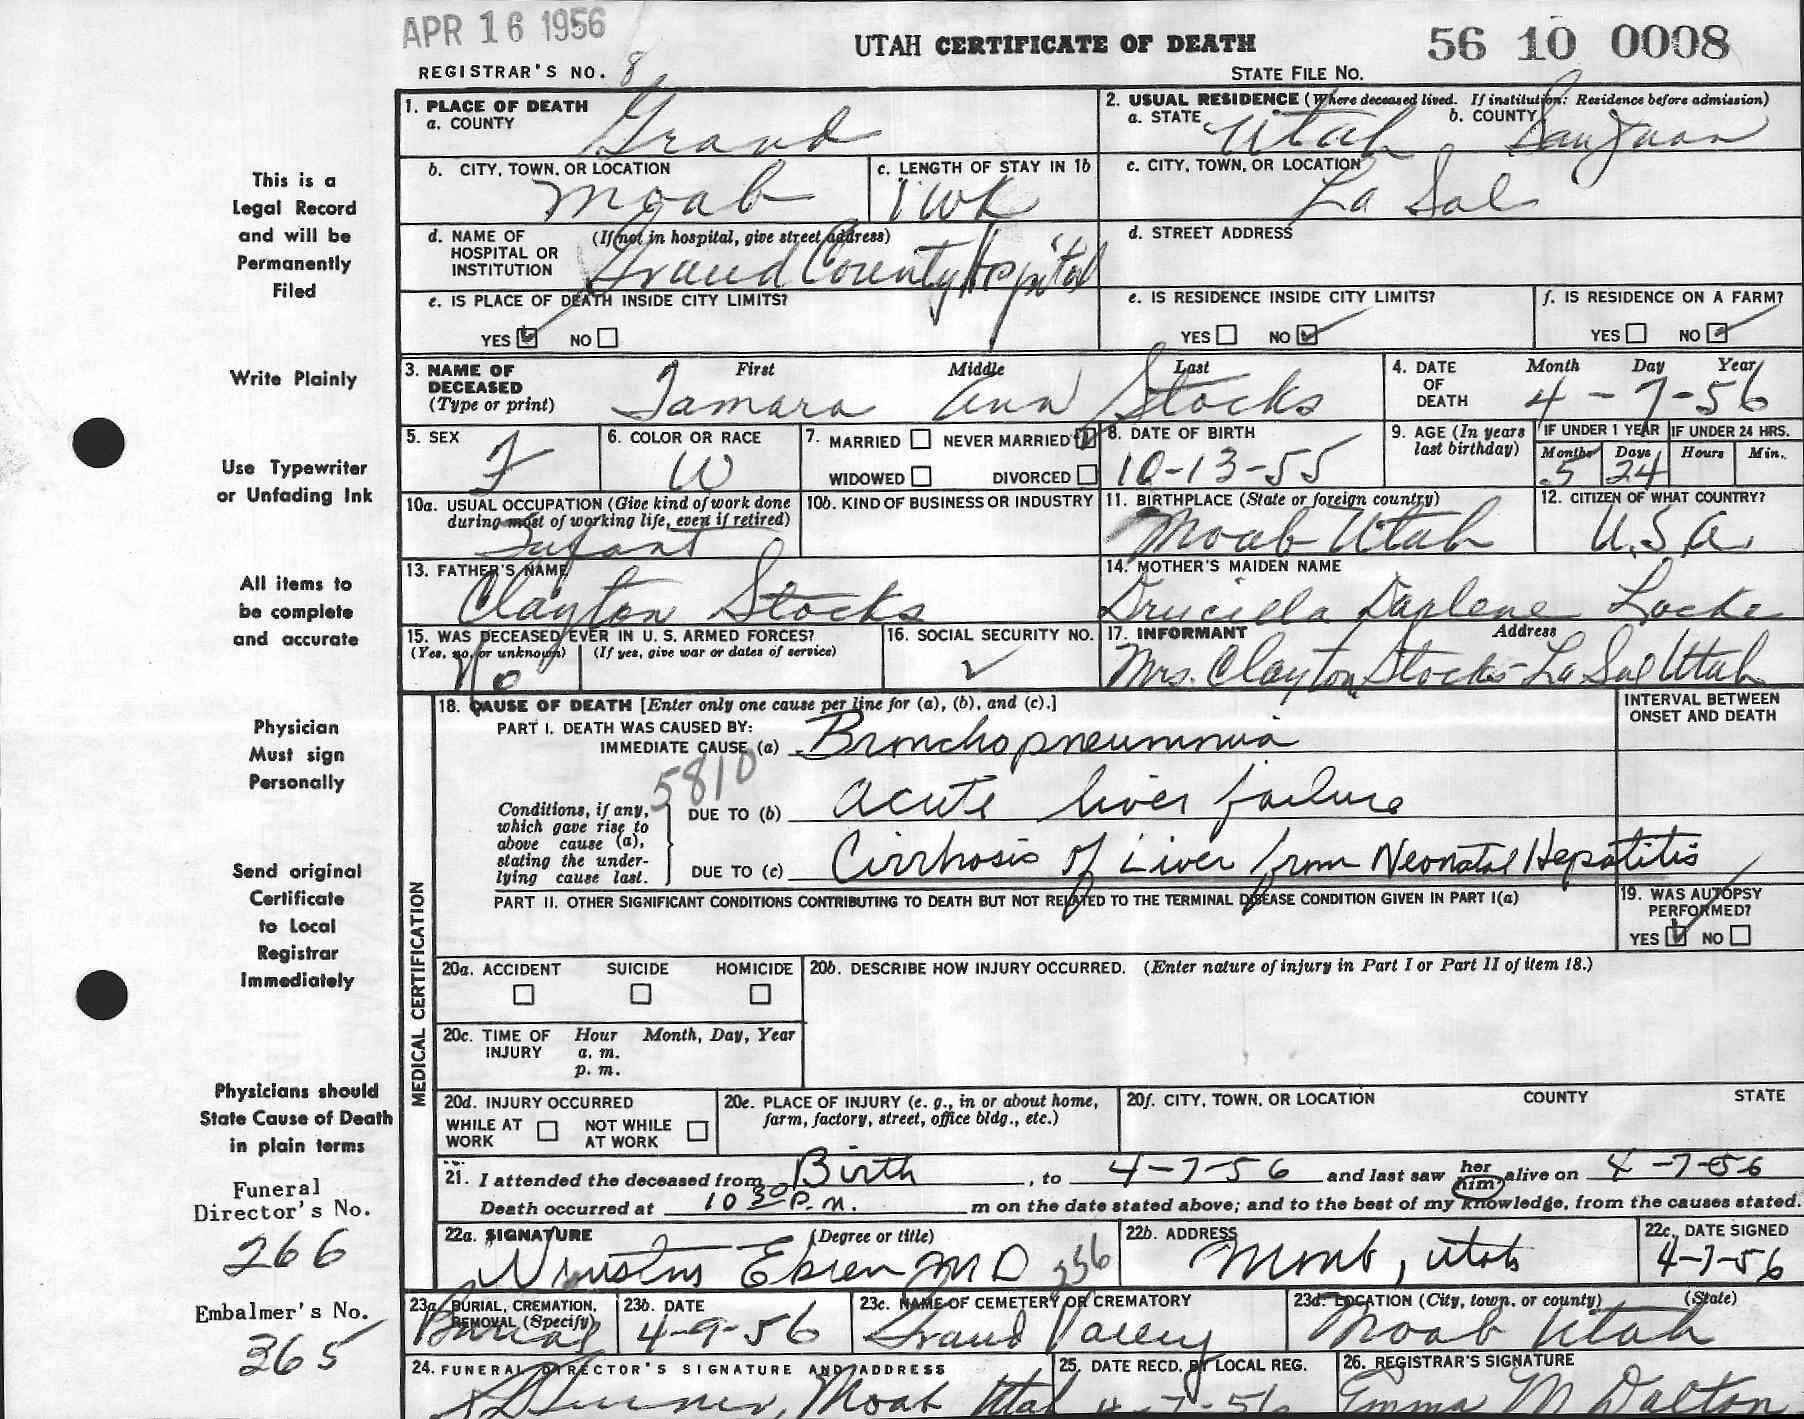 APR 16 1956
UTAH CERTIFICATE OF DEATH
56 10 0008
REGISTRAR'S NO. 8
STATE FILE NO.
1. PLACE OF DEATH
a. COUNTY Grand
2. USUAL RESIDENCE (Where deceased lived. If institution: Residence before admission)
a. STATE Utah b. COUNTY San Juan
b. CITY, TOWN, OR LOCATION Moab
c. LENGTH OF STAY IN 1b 1 wk
c. CITY, TOWN, OR LOCATION La Sal
d. NAME OF HOSPITAL OR INSTITUTION (If not in hospital, give street address) Grand County Hospital
d. STREET ADDRESS
e. IS PLACE OF DEATH INSIDE CITY LIMITS?
YES NO
e. IS RESIDENCE INSIDE CITY LIMITS?
YES NO
f. IS RESIDENCE ON A FARM?
YES NO
3. NAME OF DECEASED (Type or print) First Middle Last
Tamara Ann Stocks
4. DATE OF DEATH Month Day Year
4-7-56
5. SEX F
6. COLOR OR RACE W
7. MARRIED NEVER MARRIED
WIDOWED DIVORCED
8. DATE OF BIRTH 10-13-55
9. AGE (In years last birthday)
IF UNDER 1 YEAR IF UNDER 24 HRS.
Months Days Hours Min.
5 24
10a. USUAL OCCUPATION (Give kind of work done during most of working life, even if retired)
Infant
10b. KIND OF BUSINESS OR INDUSTRY
11. BIRTHPLACE (State or foreign country)
Moab Utah
12. CITIZEN OF WHAT COUNTRY?
U.S.A.
13. FATHER'S NAME
Clayton Stocks
14. MOTHER'S MAIDEN NAME
Drucilla Darlene Locke
15. WAS DECEASED EVER IN U. S. ARMED FORCES?
(Yes, no, or unknown) (If yes, give war or dates of service)
No
16. SOCIAL SECURITY NO.
17. INFORMANT Address
Mrs. Clayton Stocks - La Sal Utah
MEDICAL CERTIFICATION
18. CAUSE OF DEATH [Enter only one cause per line for (a), (b), and (c).]
INTERVAL BETWEEN ONSET AND DEATH
PART I. DEATH WAS CAUSED BY:
IMMEDIATE CAUSE (a) Bronchopneumonia
5810
Conditions, if any, which gave rise to above cause (a), stating the underlying cause last.
DUE TO (b) acute liver failure
DUE TO (c) Cirrhosis of Liver from Neonatal Hepatitis
PART II. OTHER SIGNIFICANT CONDITIONS CONTRIBUTING TO DEATH BUT NOT RELATED TO THE TERMINAL DISEASE CONDITION GIVEN IN PART I(a)
19. WAS AUTOPSY PERFORMED?
YES NO
20a. ACCIDENT SUICIDE HOMICIDE
20b. DESCRIBE HOW INJURY OCCURRED. (Enter nature of injury in Part I or Part II of item 18.)
20c. TIME OF INJURY Hour Month, Day, Year
a. m.
p. m.
20d. INJURY OCCURRED
WHILE AT WORK NOT WHILE AT WORK
20e. PLACE OF INJURY (e. g., in or about home, farm, factory, street, office bldg., etc.)
20f. CITY, TOWN, OR LOCATION COUNTY STATE
21. I attended the deceased from Birth, to 4-7-56 and last saw her him alive on 4-7-56
Death occurred at 10 30 P.M. m on the date stated above; and to the best of my knowledge, from the causes stated.
22a. SIGNATURE (Degree or title)
MD 336
22b. ADDRESS
Moab, Utah
22c. DATE SIGNED
4-7-56
23a. BURIAL, CREMATION, REMOVAL (Specify)
Burial
23b. DATE
4-9-56
23c. NAME OF CEMETERY OR CREMATORY
Grand Valley
23d. LOCATION (City, town, or county) (State)
Moab Utah
24. FUNERAL DIRECTOR'S SIGNATURE AND ADDRESS
Moab Utah
25. DATE RECD. BY LOCAL REG.
4-7-56
26. REGISTRAR'S SIGNATURE
Emma M Dalton
This is a
Legal Record
and will be
Permanently
Filed
Write Plainly
Use Typewriter
or Unfading Ink
All items to
be complete
and accurate
Physician
Must sign
Personally
Send original
Certificate
to Local
Registrar
Immediately
Physicians should
State Cause of Death
in plain terms
Funeral
Director's No.
266
Embalmer's No.
365